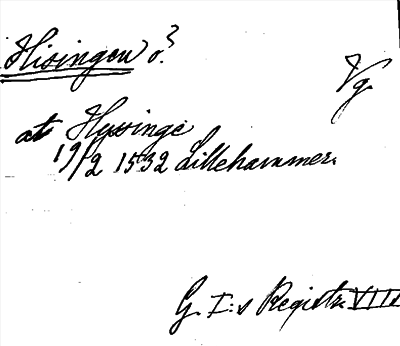 Hisingen ö.
Vg.
at Hyssinge
19/2 1532 Lillehammer.
G. I:s Registr. VIII